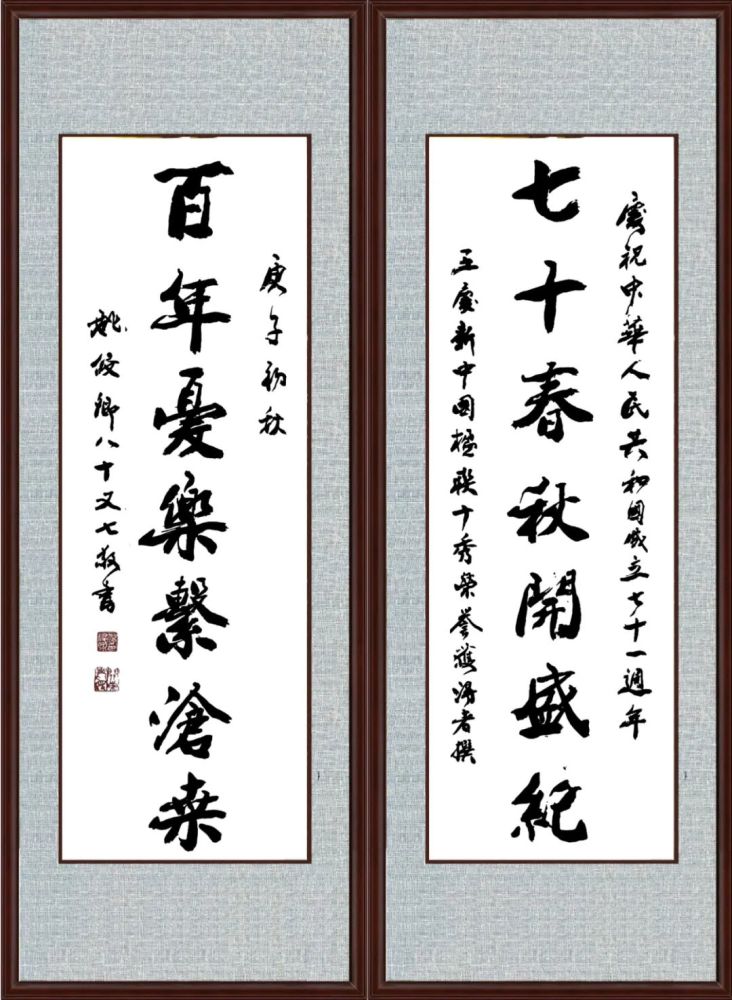 慶祝中華人民共和國成立七十一週年
七十春秋開盛紀
王慶新中国楹聯十秀榮譽獲得者撰
庚子初秋
百年憂樂繫滄桑
姚俊卿八十又七敬書